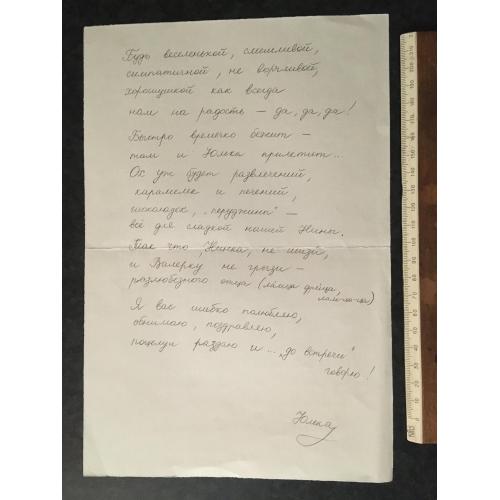 Будь веселенькой, смешливой,
симпатичной, не ворчливой,
хорошушкой как всегда
нам на радость – да, да, да!
Быстро времечко бежит –
там и Юлька прилетит...
Ох уж будет развлечений,
карамелек и печений,
шоколадок, „перуджини" –
всё для сладкой нашей Нины.
Так что, Нинка, не
и Валерку не грызи –
разлюбезного отца (ламца дрица,
лам-ца-ца)
Я вас шибко полюбляю,
обнимаю, поздравляю,
поцелуи раздаю и ... „до встречи"
говорю!
Юлька